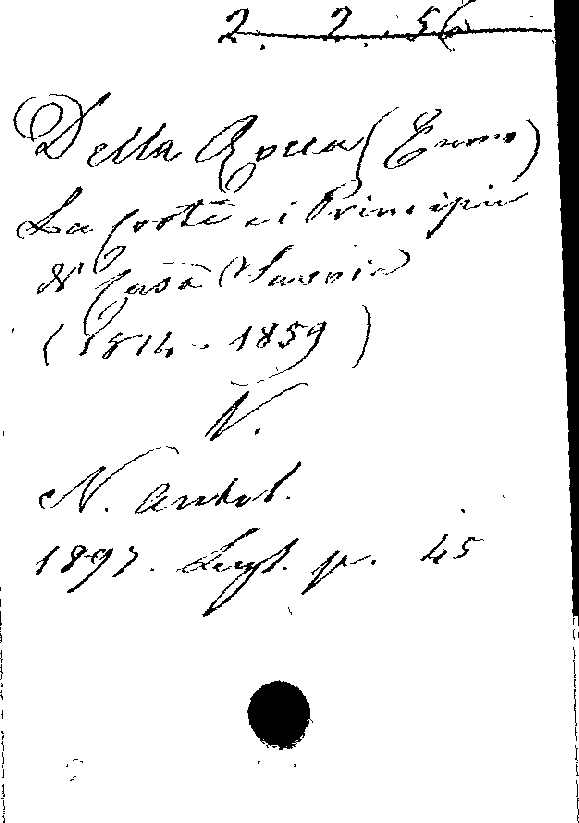 2. 2. 56
Della Rocca (Enrico)
La Corte e i Principi
di Casa Savoia
(1814 - 1859)
V.
N. Antol.
1897. Lugl. p. 45